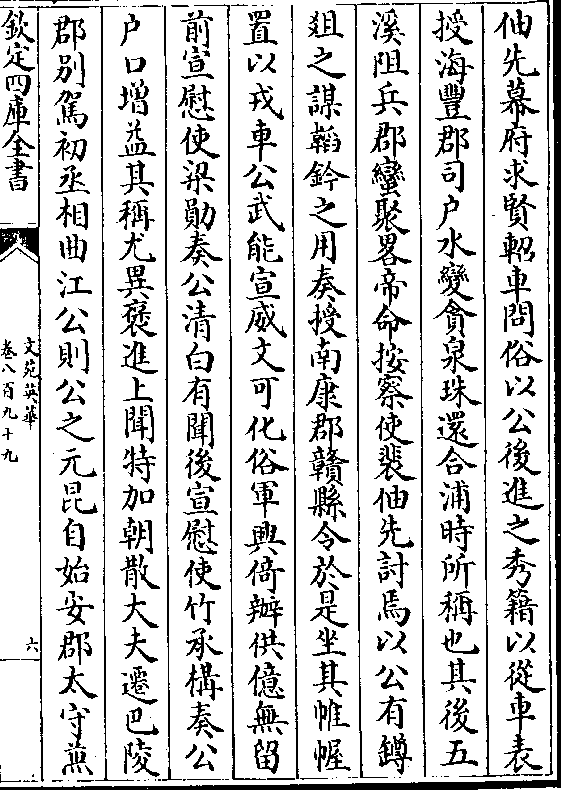 伷先幕府求賢軺車問俗以公後進之秀籍以從車表
授海豐郡司户水變貪泉珠還合浦時所稱也其後五
溪阻兵郡蠻聚畧帝命按察使裴伷先討焉以公有鐏
爼之謀韜鈐之用奏授南康郡贛縣令於是坐其帷幄
置以戎車公武能宣威文可化俗軍興倚辦供億無留
前宣慰使梁勛奏公清白有聞後宣慰使竹承構奏公
户口增益其稱尤異褒進上聞特加朝散大夫遷巴陵
郡别駕初丞相曲江公則公之元昆自始安郡太守兼
欽定四庫全書
文苑英華
卷八百九十九
六